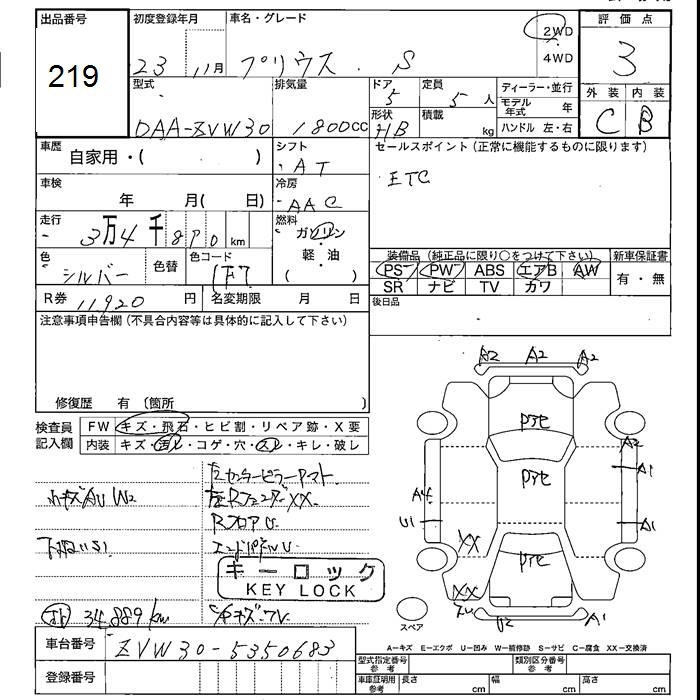 出品番号 初度登録年月 車名・グレード 2WD 評価点
219 23 11月 プリウス S 4WD 3
型式 排気量 ドア 5 定員 5 人 ディーラー・並行 外装 内装
DAA-ZVW30 1800cc 形状 HB 積載 kg モデル年式 年 C B
ハンドル 左・右
車歴 自家用・( ) シフト AT セールスポイント (正常に機能するものに限ります)
車検 年 月( 日) 冷房 AAC ETC
走行 3万4千890 km 燃料 ガソリン・軽・油 ( )
色 シルバー 色替 色コード 1F7 装備品 (純正品に限り○をつけて下さい) 新車保証書
PS PW ABS エアB AW 有・無
SR ナビ TV カワ
R券 11920 円 名変期限 月 日 後日品
注意事項申告欄 (不具合内容等は具体的に記入して下さい)
修復歴 有 〔箇所 〕
検査員記入欄 FW キズ・飛石・ヒビ割・リペア跡・X要
内装 キズ・汚レ・コゲ・穴・スレ・キレ・破レ
A2 A2 A2
P済
A2
P済 A1
A4
U1 A1
XX P済
XX
U2 A1
スペア
小キズAU W2
RフロアU
エンドパネルU
キーロック
KEY LOCK
34,889 km
A−キズ E−エクボ U−凹み W−補修跡 S−サビ C−腐食 XX−交換済
車台番号 ZVW30-5350683
型式指定番号 参考 類別区分番号 参考
登録番号
車庫証明用 参考 長さ cm 幅 cm 高さ cm